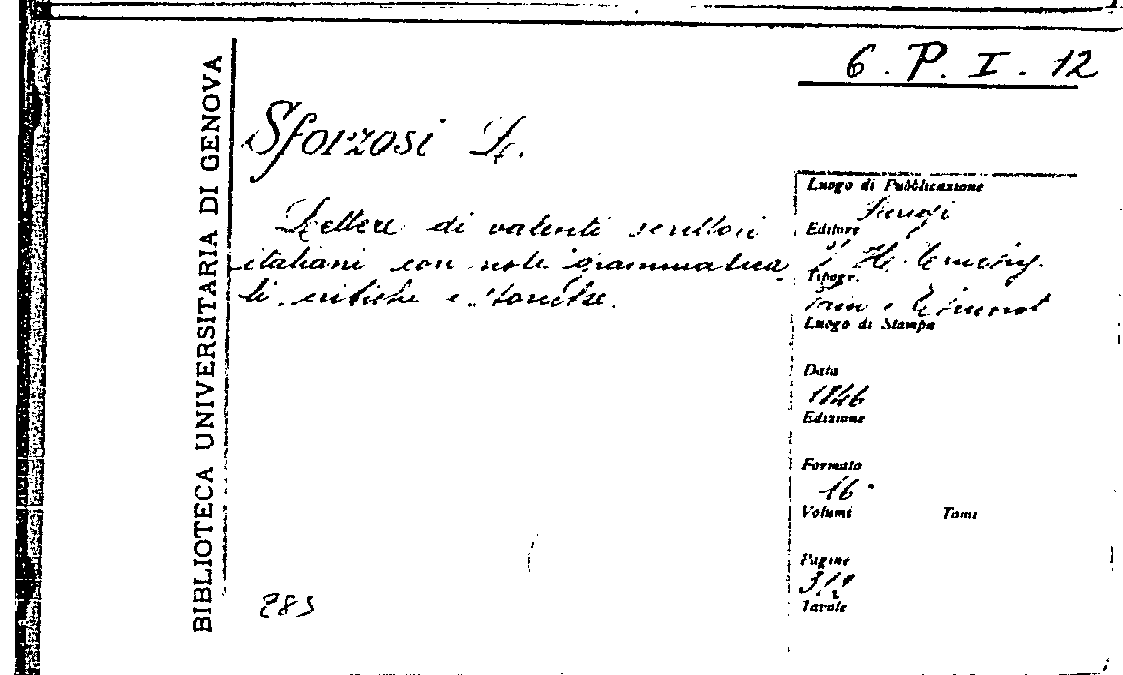 6. P. I. 12
BIBLIOTECA UNIVERSITARIA DI GENOVA
Sforzosi L.
Lettere di valenti scrittori
italiani con note grammatica
li critiche e storiche.
Luogo di Pubblicazione
Parigi
Editore
H.
Tipogr.
Luogo di Stampa
Data
1846
Edizione
Formato
16°
Volumi Tomi
Pagine
Tavole
283